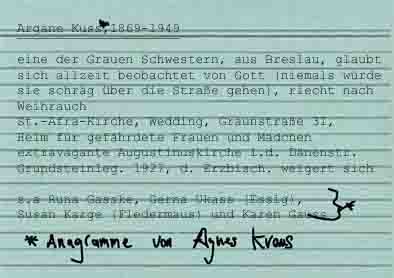 Argane Kuss,* 1869-1949
eine der Grauen Schwestern, aus Breslau, glaubt
sich allzeit beobachtet von Gott (niemals würde
sie schräg über die Straße gehen), riecht nach
Weihrauch
St.-Afra-Kirche, Wedding, Graunstraße 31,
Heim für gefährdete Frauen und Mädchen
extravagante Augustinuskirche i.d. Dänenstr.
Grundsteinleg. 1927, d. Erzbisch. weigert sich
s.a Runa Gasske, Gerna Ukass (Essig),
Susan Karge (Fledermaus) und Karen Gauss *
* Anagramme von Agnes Kraus